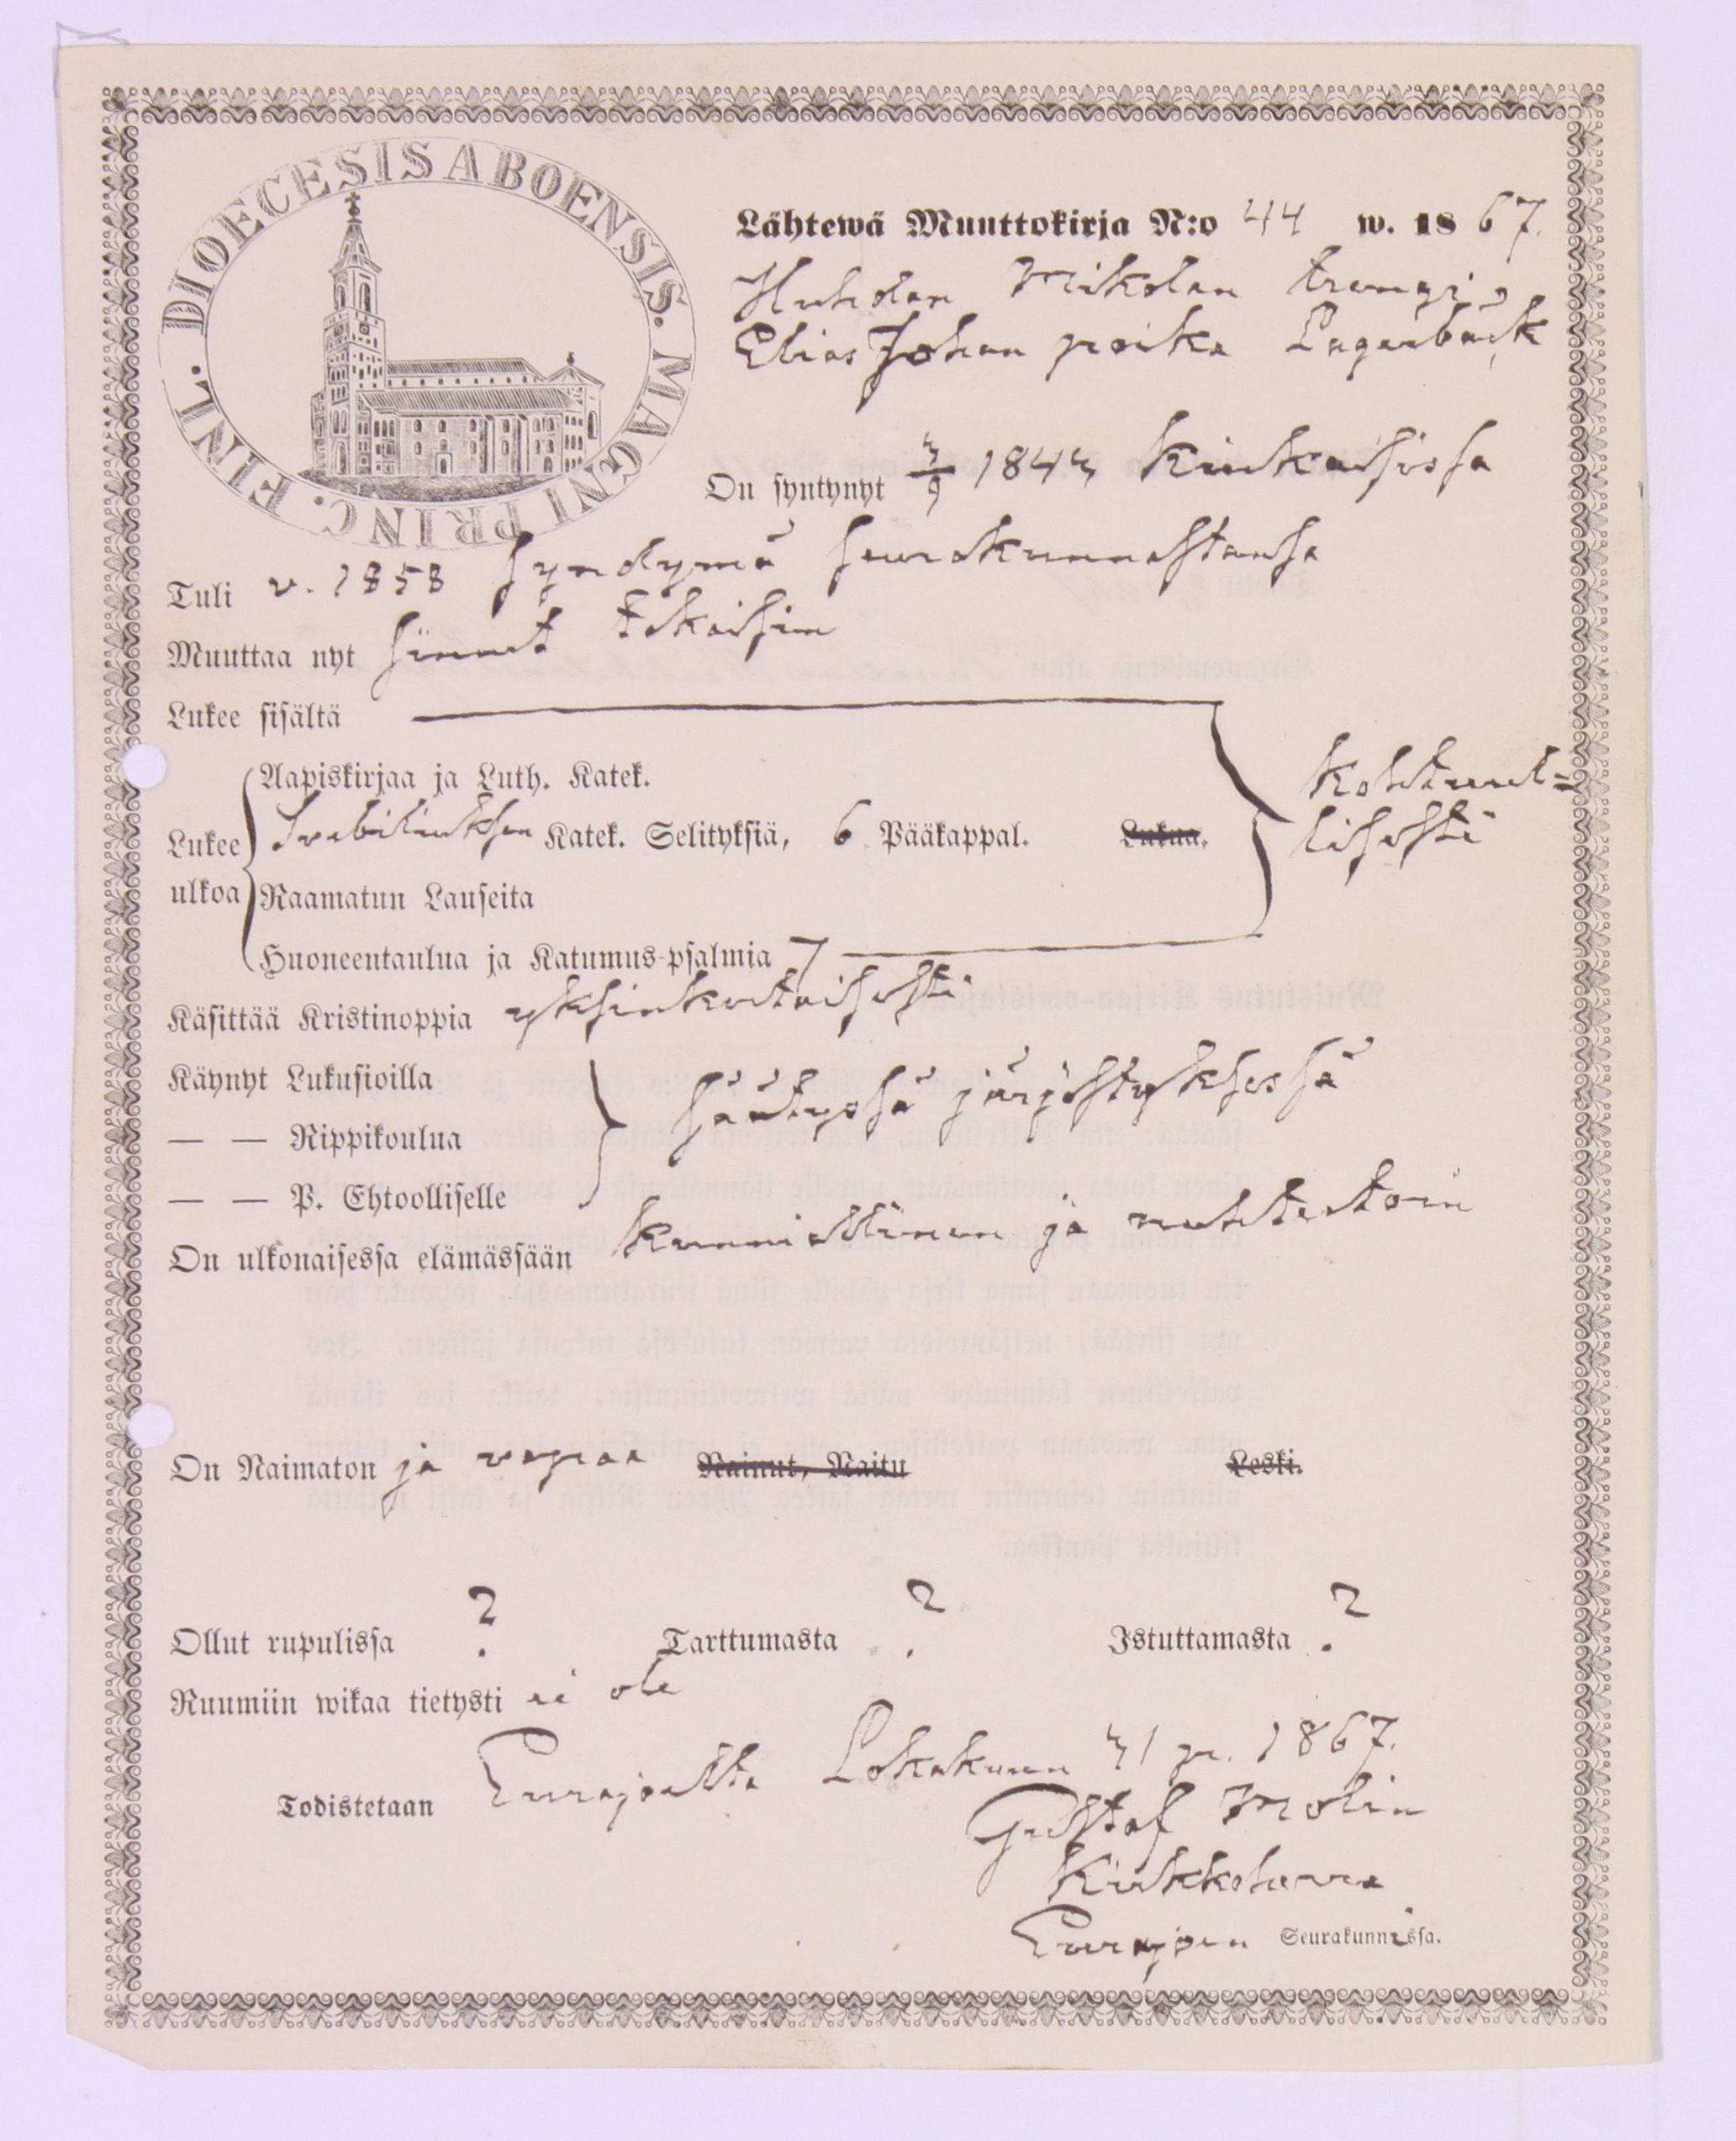 DIOECESIS ABOENSIS. MAGNI PRINC. FINL.
Lähtewä Muuttokirja N:o 44 w. 1867.
Huhdan Mikolan trengi,
Elias Johan poika Lagerbäck
On syntynyt 3/9 1843 Kiukaisissa
Tuli v. 1858 syndymä seurakunnastansa
Muuttaa nyt sinnet takaisin
Lukee sisältä
Aapiskirjaa ja Luth. Katek.
Kohtuul=
Lukee Svebiliuksen Katek. Selityksiä, 6 Pääkappal. Lukua.
lisesti
ulkoa Raamatun Lauseita
Huoneentaulua ja Katumus-psalmia 7
Käsittää Kristinoppia yksinkertaisesti
Käynyt Lukusioilla
säätyssä järjestyksessä
— — Rippikoulua
— — P. Ehtoolliselle
On ulkonaisessa elämässään kunniallinen ja nuhteetoin
On Naimaton ja vapaa Nainut, Naitu Leski.
Ollut rupulissa ? Tarttumasta ? Istuttamasta ?
Ruumiin wikaa tietysti ei ole
Todistetaan Eurajoella Lokakuun 31 p. 1867.
Gustaf Molin
Kirkkoherra
Eurajoen Seurakunnissa.